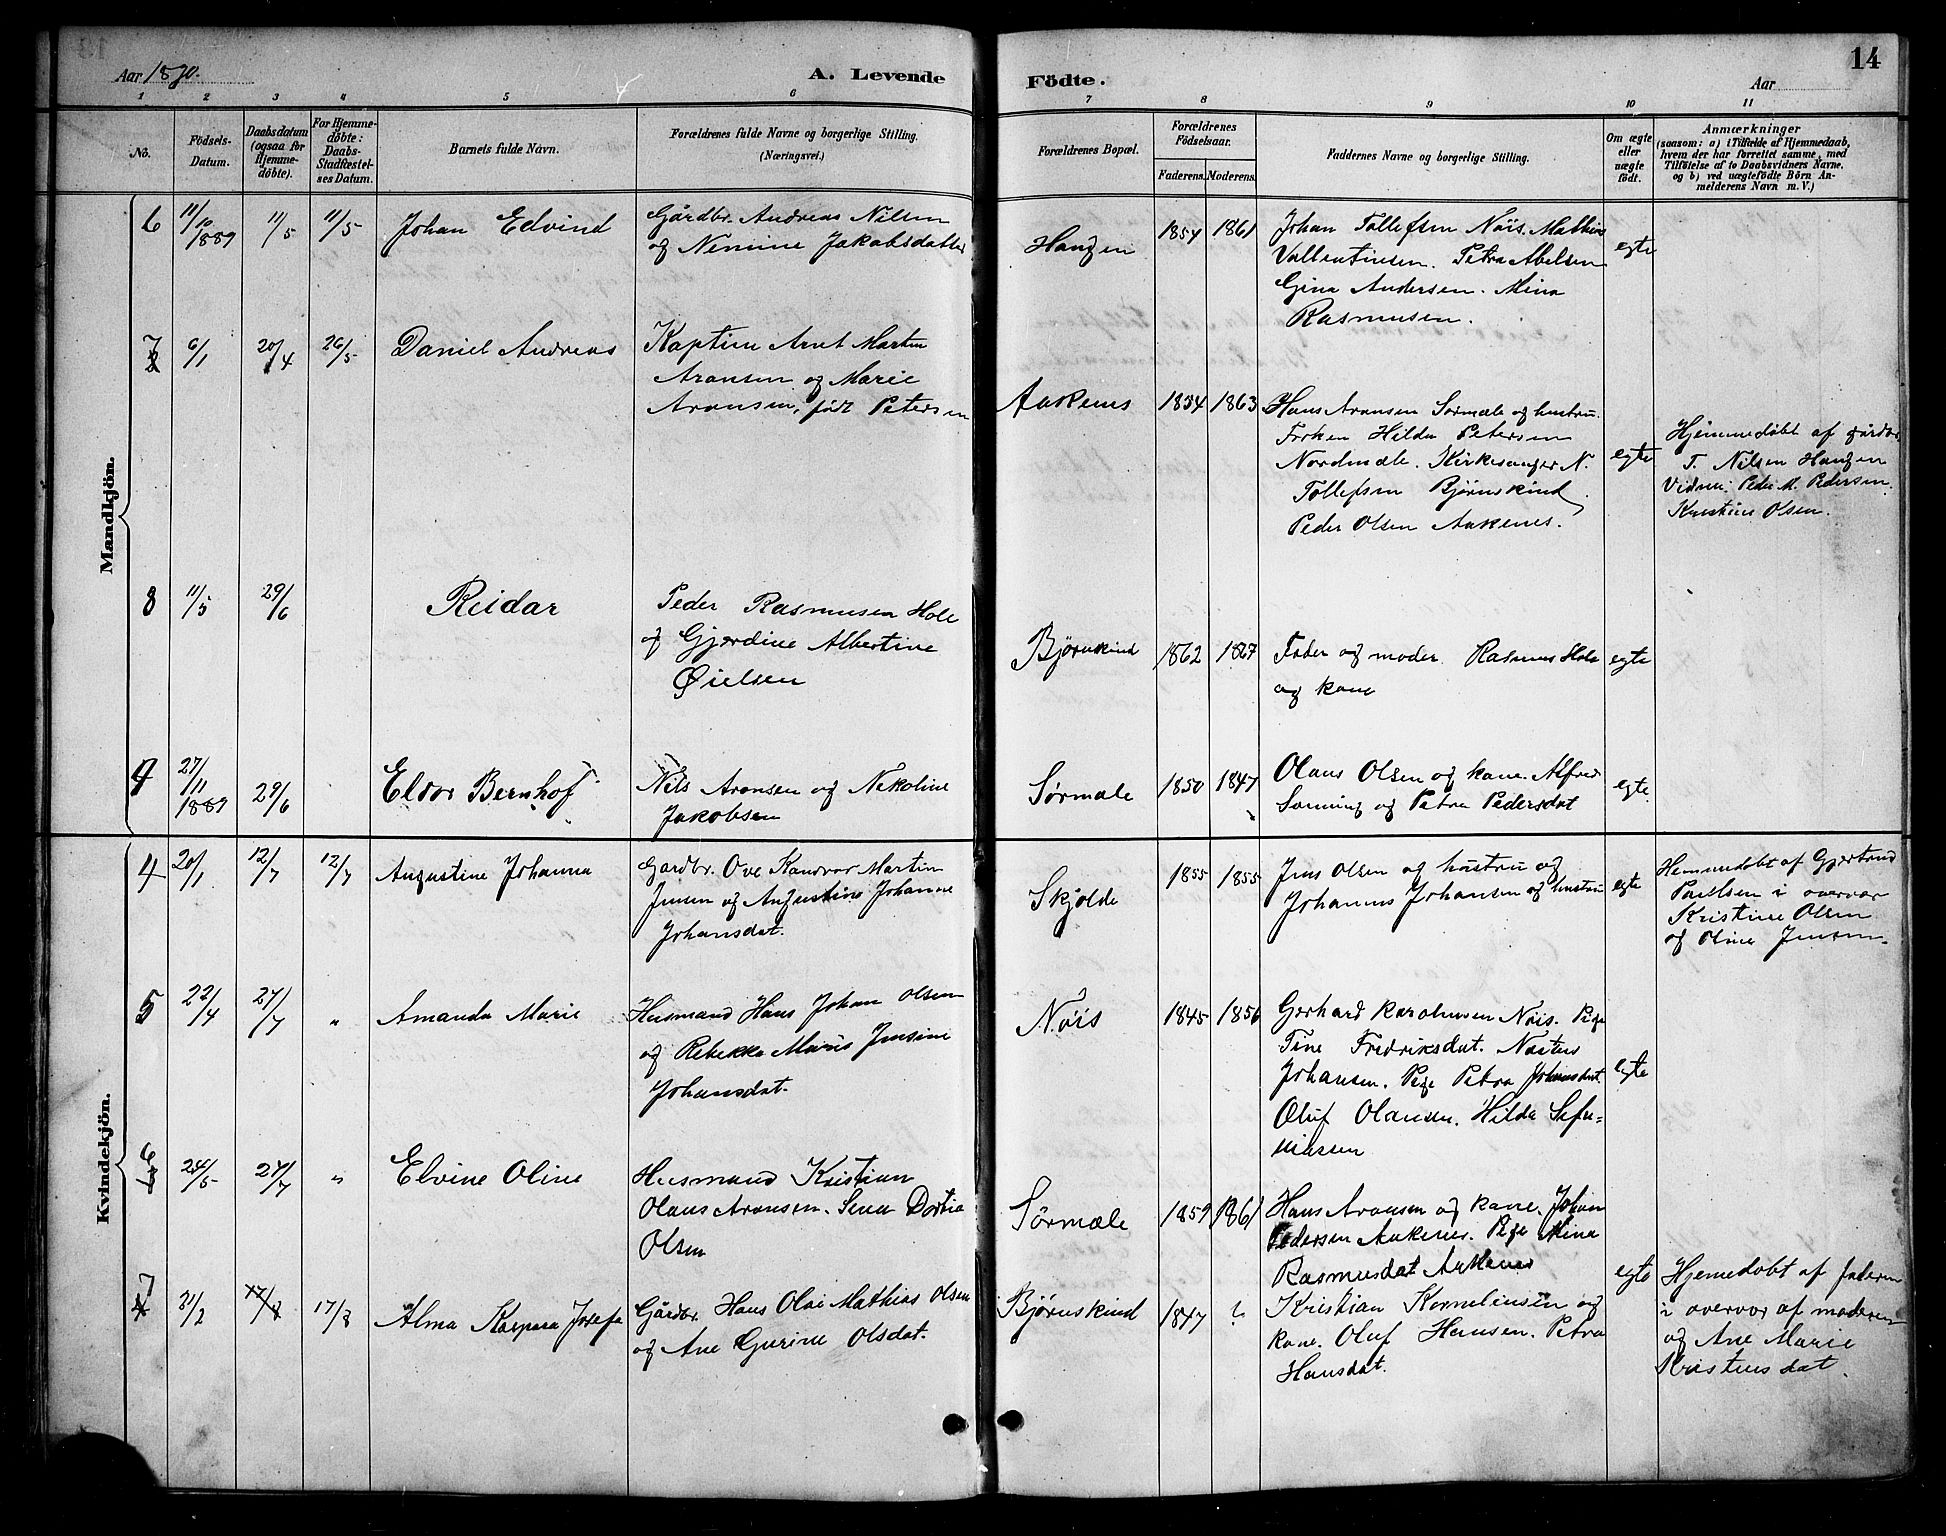 Aar 1890.
A. Levende
Födte.
14
Aar
1 2 3 4 5 6 7 8 9 10 11
No.
Födsels-
Datum.
Daabsdatum
(ogsaa for
Hjemme-
döbte).
For Hjemme-
döbte:
Daabs-
Stadfæstel-
ses Datum.
Barnets fulde Navn.
Forældrenes fulde Navne og borgerlige Stilling.
(Næringsvei.)
Forældrenes Bopæl.
Forældrenes
Födselsaar.
Faderens. Moderens.
Faddernes Navne og borgerlige Stilling.
Om ægte
eller
uægte
födt.
Anmærkninger
(saasom: a) i Tilfælde af Hjemmedaab,
hvem der har forrettet samme, med
Tilföielse af to Daabsvidners Navne,
og b) ved uægtefödte Börn An-
melderens Navn m. V.)
Mandkjön.
6
11/10
1889
11/5
11/5
Johan Edvind
Gårdbr. Andreas Nilsen
og Nemine Jakobsdatter
Hanzen
1854
1861
Johan Tollefsen Nöis. Mathias
Valbentinsen. Petra Abelsen
Gina Andersen. Mina
Rasmusen.
egte
7
6/1
20/4
26/5
Daniel Andreas
Kaptein Arnt Martin
Aronsen og Marie
Aronsen, født Petersen
Aakenes
1854
1863
Hans Aronsen Sørmæle og hustru.
Frøken Hilda Petersen
Nordmæle. Kirkesanger N.
Tollefsen Bjørnskind
Peder Olsen Aakenes.
egte
Hjemmedøbt af gårdbr.
T. Nilsen Hanzen
Vidner: Peder M. Pedersen
Kristine Olsen.
8
11/5
29/6
Reidar
Peder Rasmusen Hole
og Gjærdine Albertine
Øielsen
Bjørnskind
1862
1867
Fader og moder. Rasmus Hole
og kone
egte
9
27/11
1889
29/6
Eldor Bernhof
Nils Aronsen og Nekoline
Jakobsen
Sørmæle
1850
1847
Olaus Olsen og kone. Alfred
Sønning og Petra Pedersdat
egte.
Kvindekjön.
4
20/1
12/7
12/7
Augustine Johanna
Gardbr. Ove Kandvar Martin
Jensen og Augustine Johanne
Johansdat.
Skjolde
1855
1855
Jens Olsen og hustru og
Johannes Johansen og hustru
egte
Hemmedøbt af Gjertrud
Paulsen i overvær
Kristine Olsen
og Oline Jensen.
5
22/4
27/7
"
Amanda Marie
Husmand Hans Johan Olsen
og Rebekka Maris Jensine
Johansdat.
Nöis
1845
1856
Gerhard Karolusen Nöis. Pige
Tine Fredriksdat. Nastus
Johansen. Pige Petra Johansdat.
Oluf Olausen. Hilda Sefu-
niassen
egte
6
24/5
27/7
"
Elvine Oline
Husmand Kristian
Olaus Aronsen. Sena Dortia
Olsen
Sørmæle
1859
1861
Hans Aronsen og kone. Johan
Pedersen Aakenes. Pige Mina
Rasmusdat Aakenes
egte
7
21/2
17/8
17/8
Alma Kaspara Josefa
Gårdbr. Hans Olai Mathias Olsen
og Ane Gurine Olsdat.
Bjørnskind
1847
?
Kristian Korneliusen og
kone. Oluf Hansen. Petra
Hansdat.
Hjemedøbt af faderen
i overvær af moderen
og Ane Marie
Kristensdat.